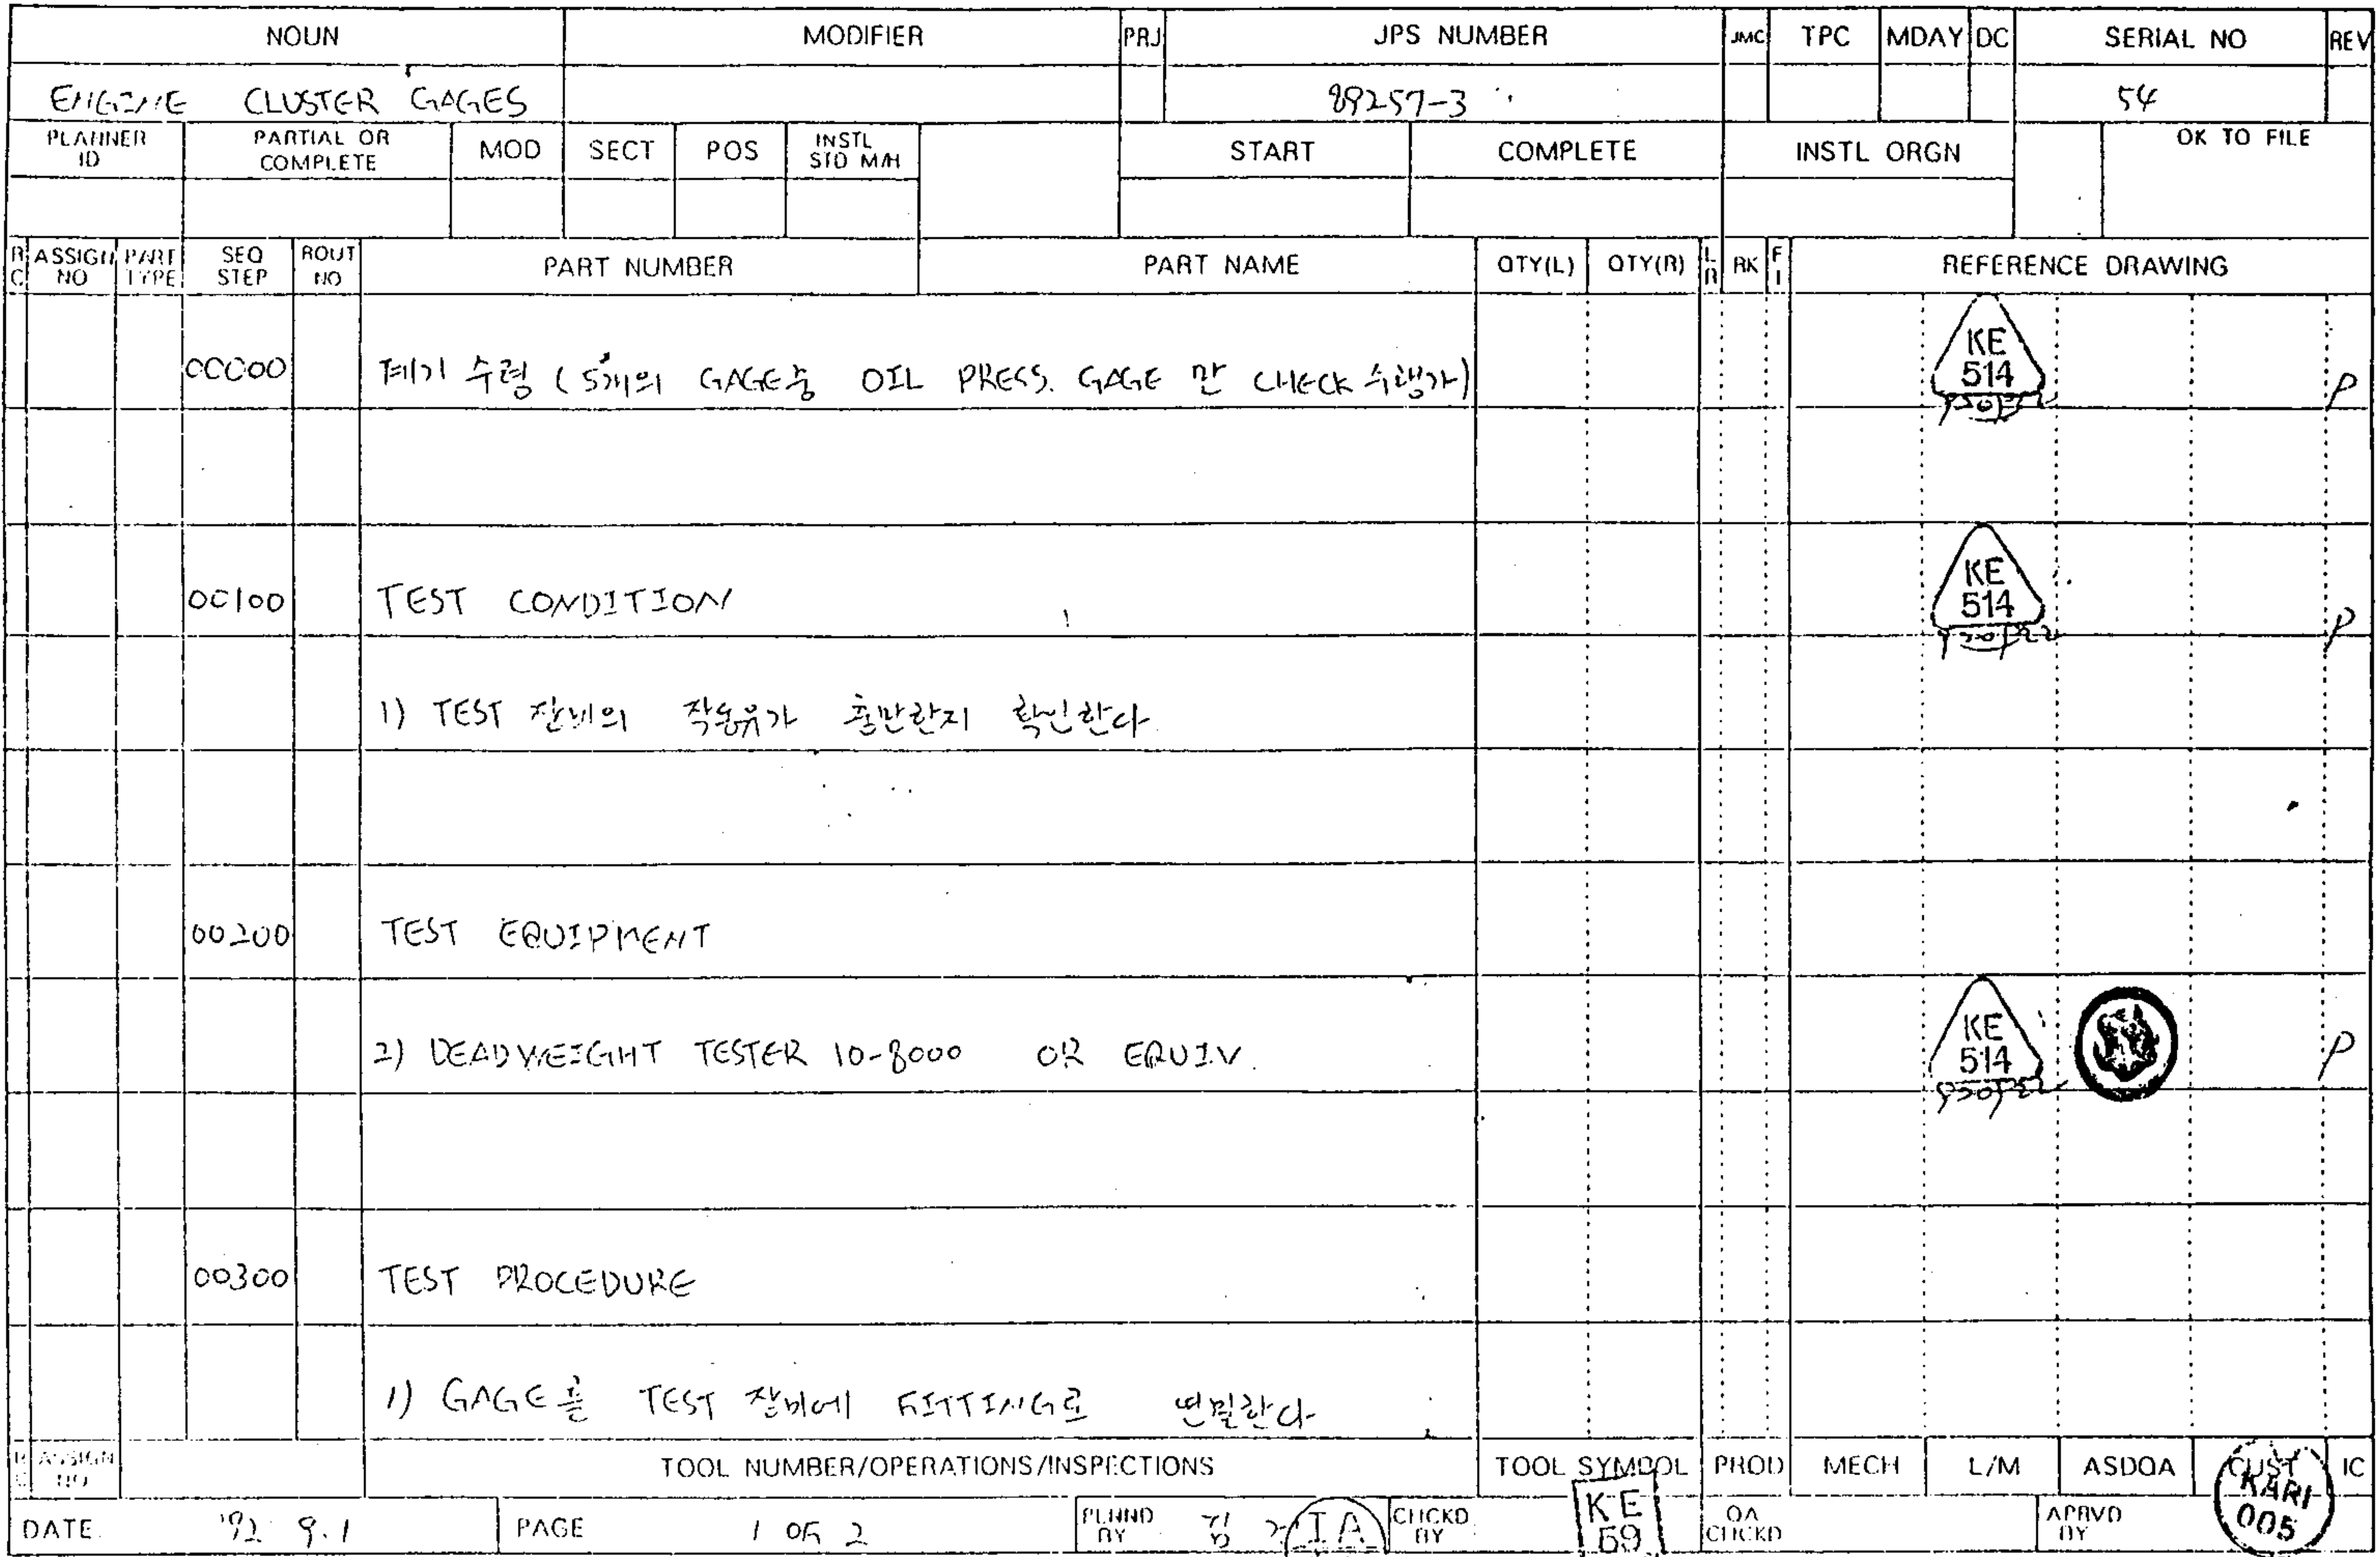 NOUN MODIFIER PRJ JPS NUMBER JMC TPC MDAY DC SERIAL NO REV
ENGINE CLUSTER GAGES 89257-3 54
PLANNER ID PARTIAL OR COMPLETE MOD SECT POS INSTL STD M/H START COMPLETE INSTL ORGN OK TO FILE
R C ASSIGN NO PART TYPE SEQ STEP ROUT NO PART NUMBER PART NAME QTY(L) QTY(R) L R RK F I REFERENCE DRAWING
00000 계기 수령 (5개의 GAGE중 OIL PRESS. GAGE 만 CHECK KE 514 P
00100 TEST CONDITION KE 514 P
1) TEST 장비의 작동유가 충만한지 확인한다
00200 TEST EQUIPMENT
2) DEADWEIGHT TESTER 10-8000 OR EQUIV. KE 514 P
00300 TEST PROCEDURE
1) GAGE를 TEST 장비에 FITTING로 연결한다
ASSIGN NO TOOL NUMBER/OPERATIONS/INSPECTIONS TOOL SYMBOL PROD MECH L/M ASDQA CUST IC
DATE '92 9.1 PAGE 1 OF 2 PLNND BY 김 IA CHCKD BY KE 59 QA CHCKD APRVD BY KARI 005